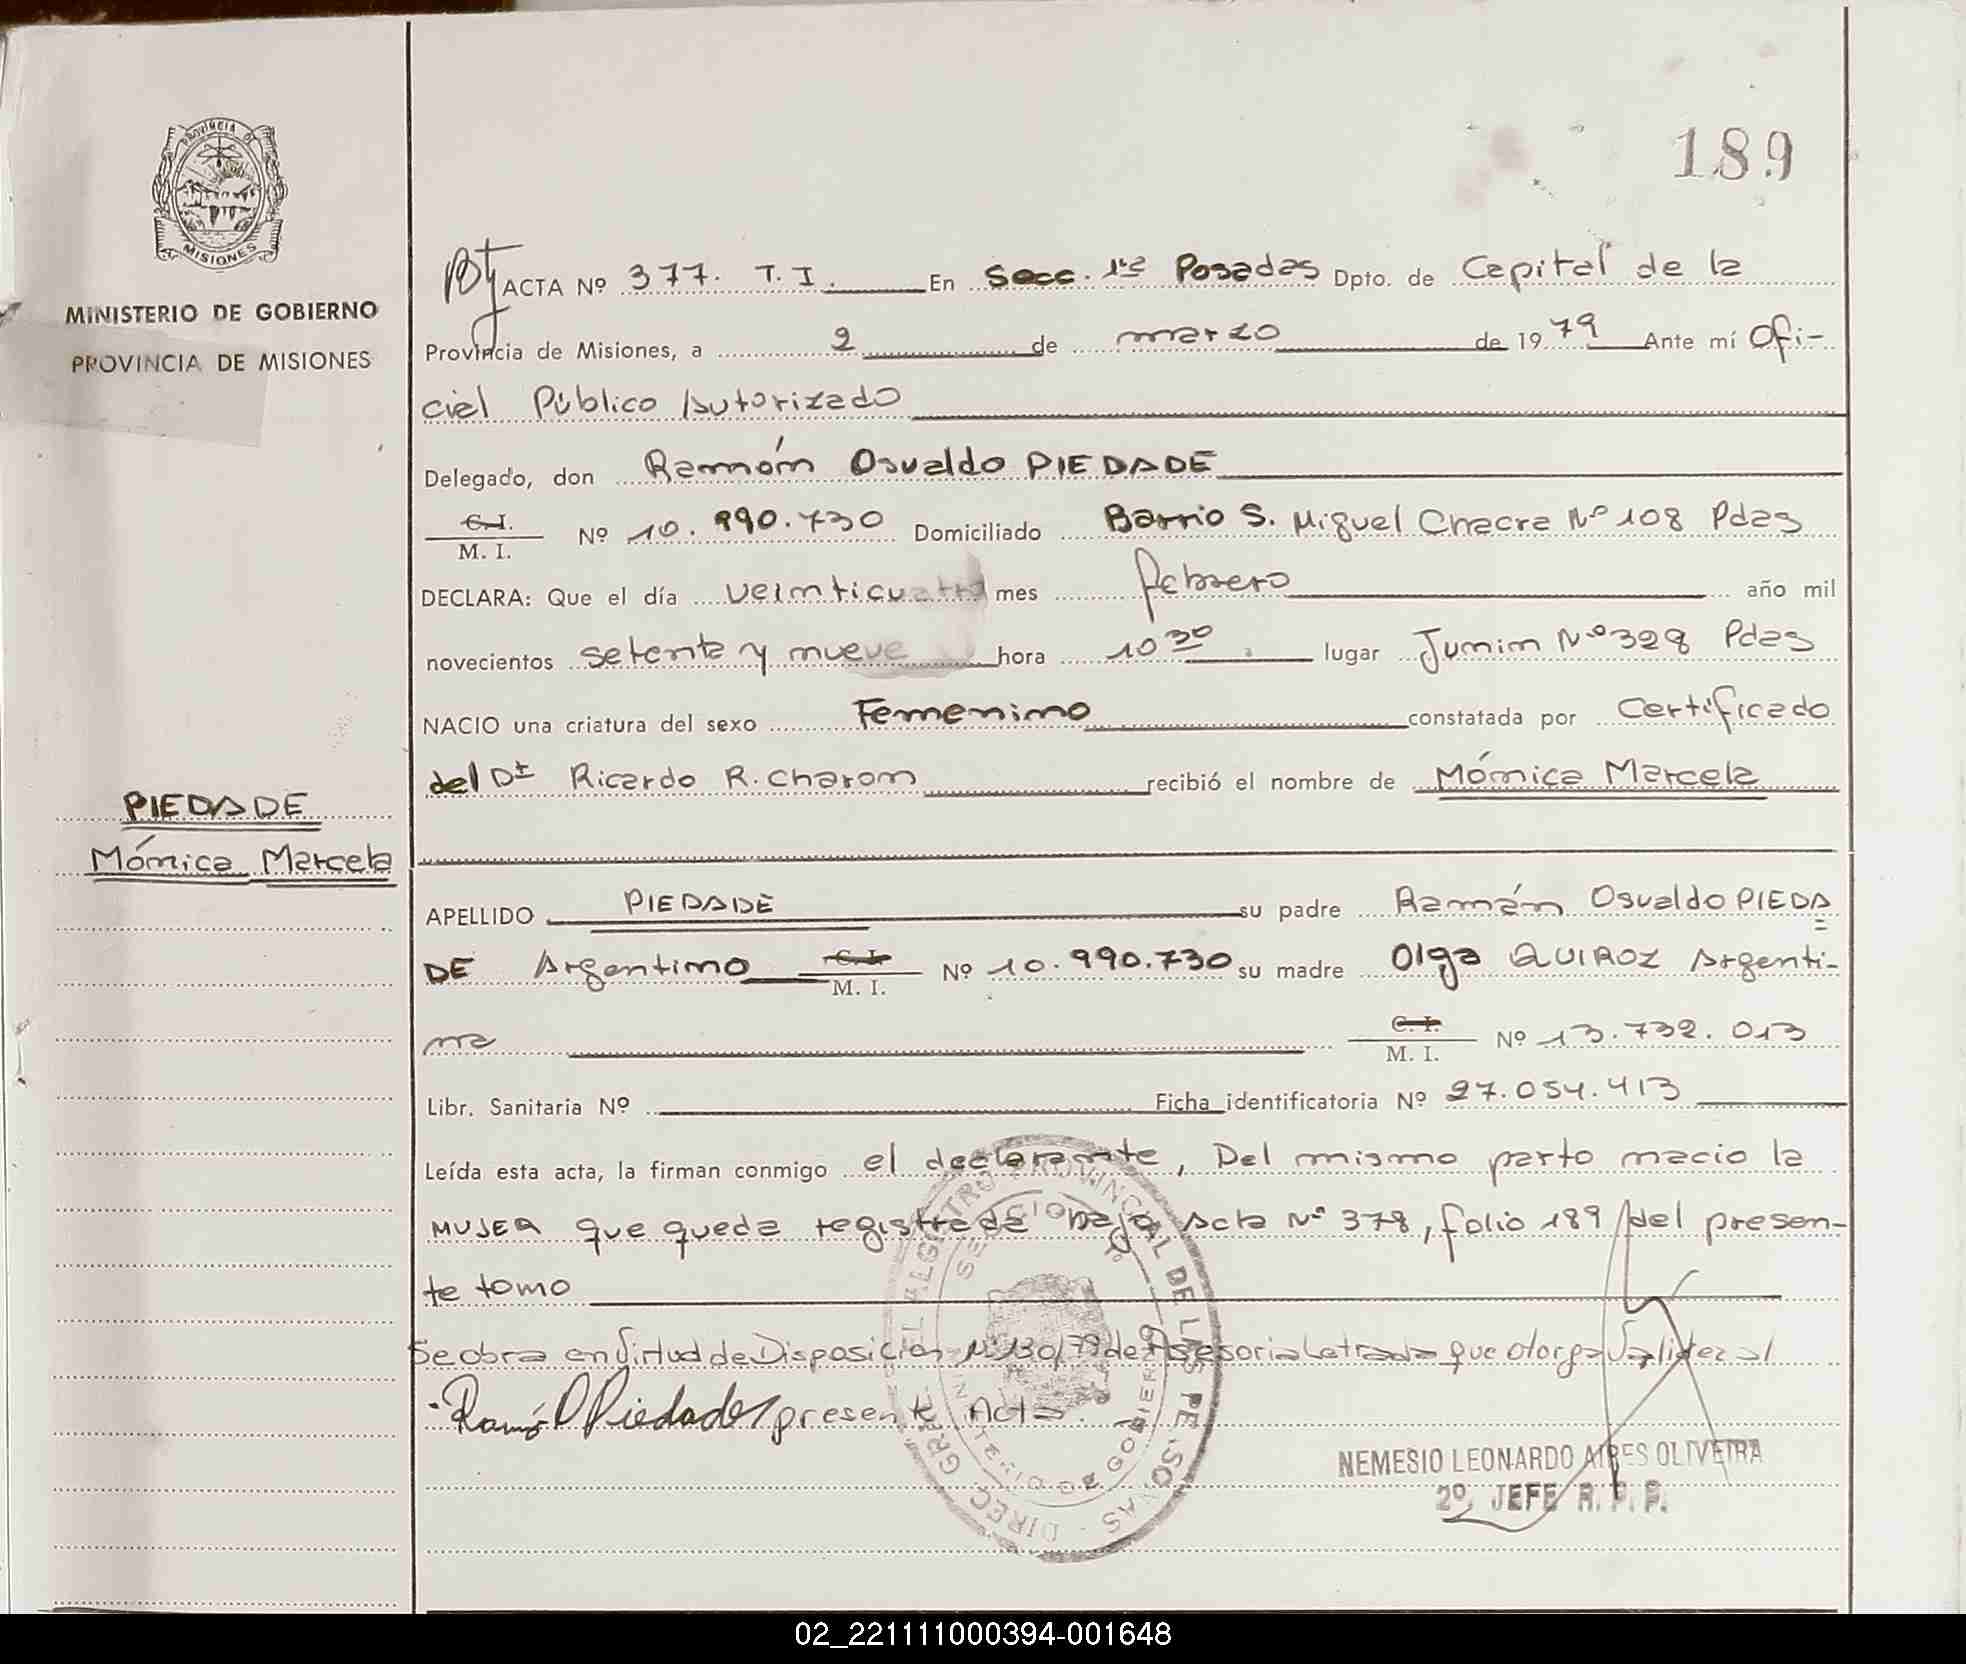 189
PROVINCIA DE
MISIONES
MINISTERIO DE GOBIERNO
PROVINCIA DE MISIONES
ACTA Nº 377. T. I. En Secc. 1ra Posadas Dpto. de Capital de la
Provincia de Misiones, a 2 de marzo de 1979 Ante mí Ofi-
cial Público Autorizado
Delegado, don Ramón Osvaldo PIEDADE
C.I.
M. I. Nº 10.990.730 Domiciliado Barrio S. Miguel Chacra Nº 108 Pdas
DECLARA: Que el día veinticuatro mes febrero año mil
novecientos setenta y nueve hora 10 30 lugar Junin Nº 328 Pdas
NACIO una criatura del sexo Femenino constatada por Certificado
del Dr Ricardo R. Charon recibió el nombre de Mónica Marcela
PIEDADE
Mónica Marcela
APELLIDO PIEDADE su padre Ramón Osvaldo PIEDA
DE Argentino C.I.
M. I. Nº 10.990.730 su madre Olga QUIROZ Argenti-
na C.I.
M. I. Nº 13.732.013
Libr. Sanitaria Nº Ficha identificatoria Nº 27.054.413
Leída esta acta, la firman conmigo el declarante, Del mismo parto nacio la
MUJER que queda registrada bajo Acta Nº 378, folio 189 del presen-
te tomo
Se obra en Virtud de Disposicion Nº 130/79 de Asesoria Letrada que otorga Validez al
Ramón O Piedade presente Acta.
NEMESIO LEONARDO AIRES OLIVEIRA
2º. JEFE R. P. P.
02_221111000394-001648